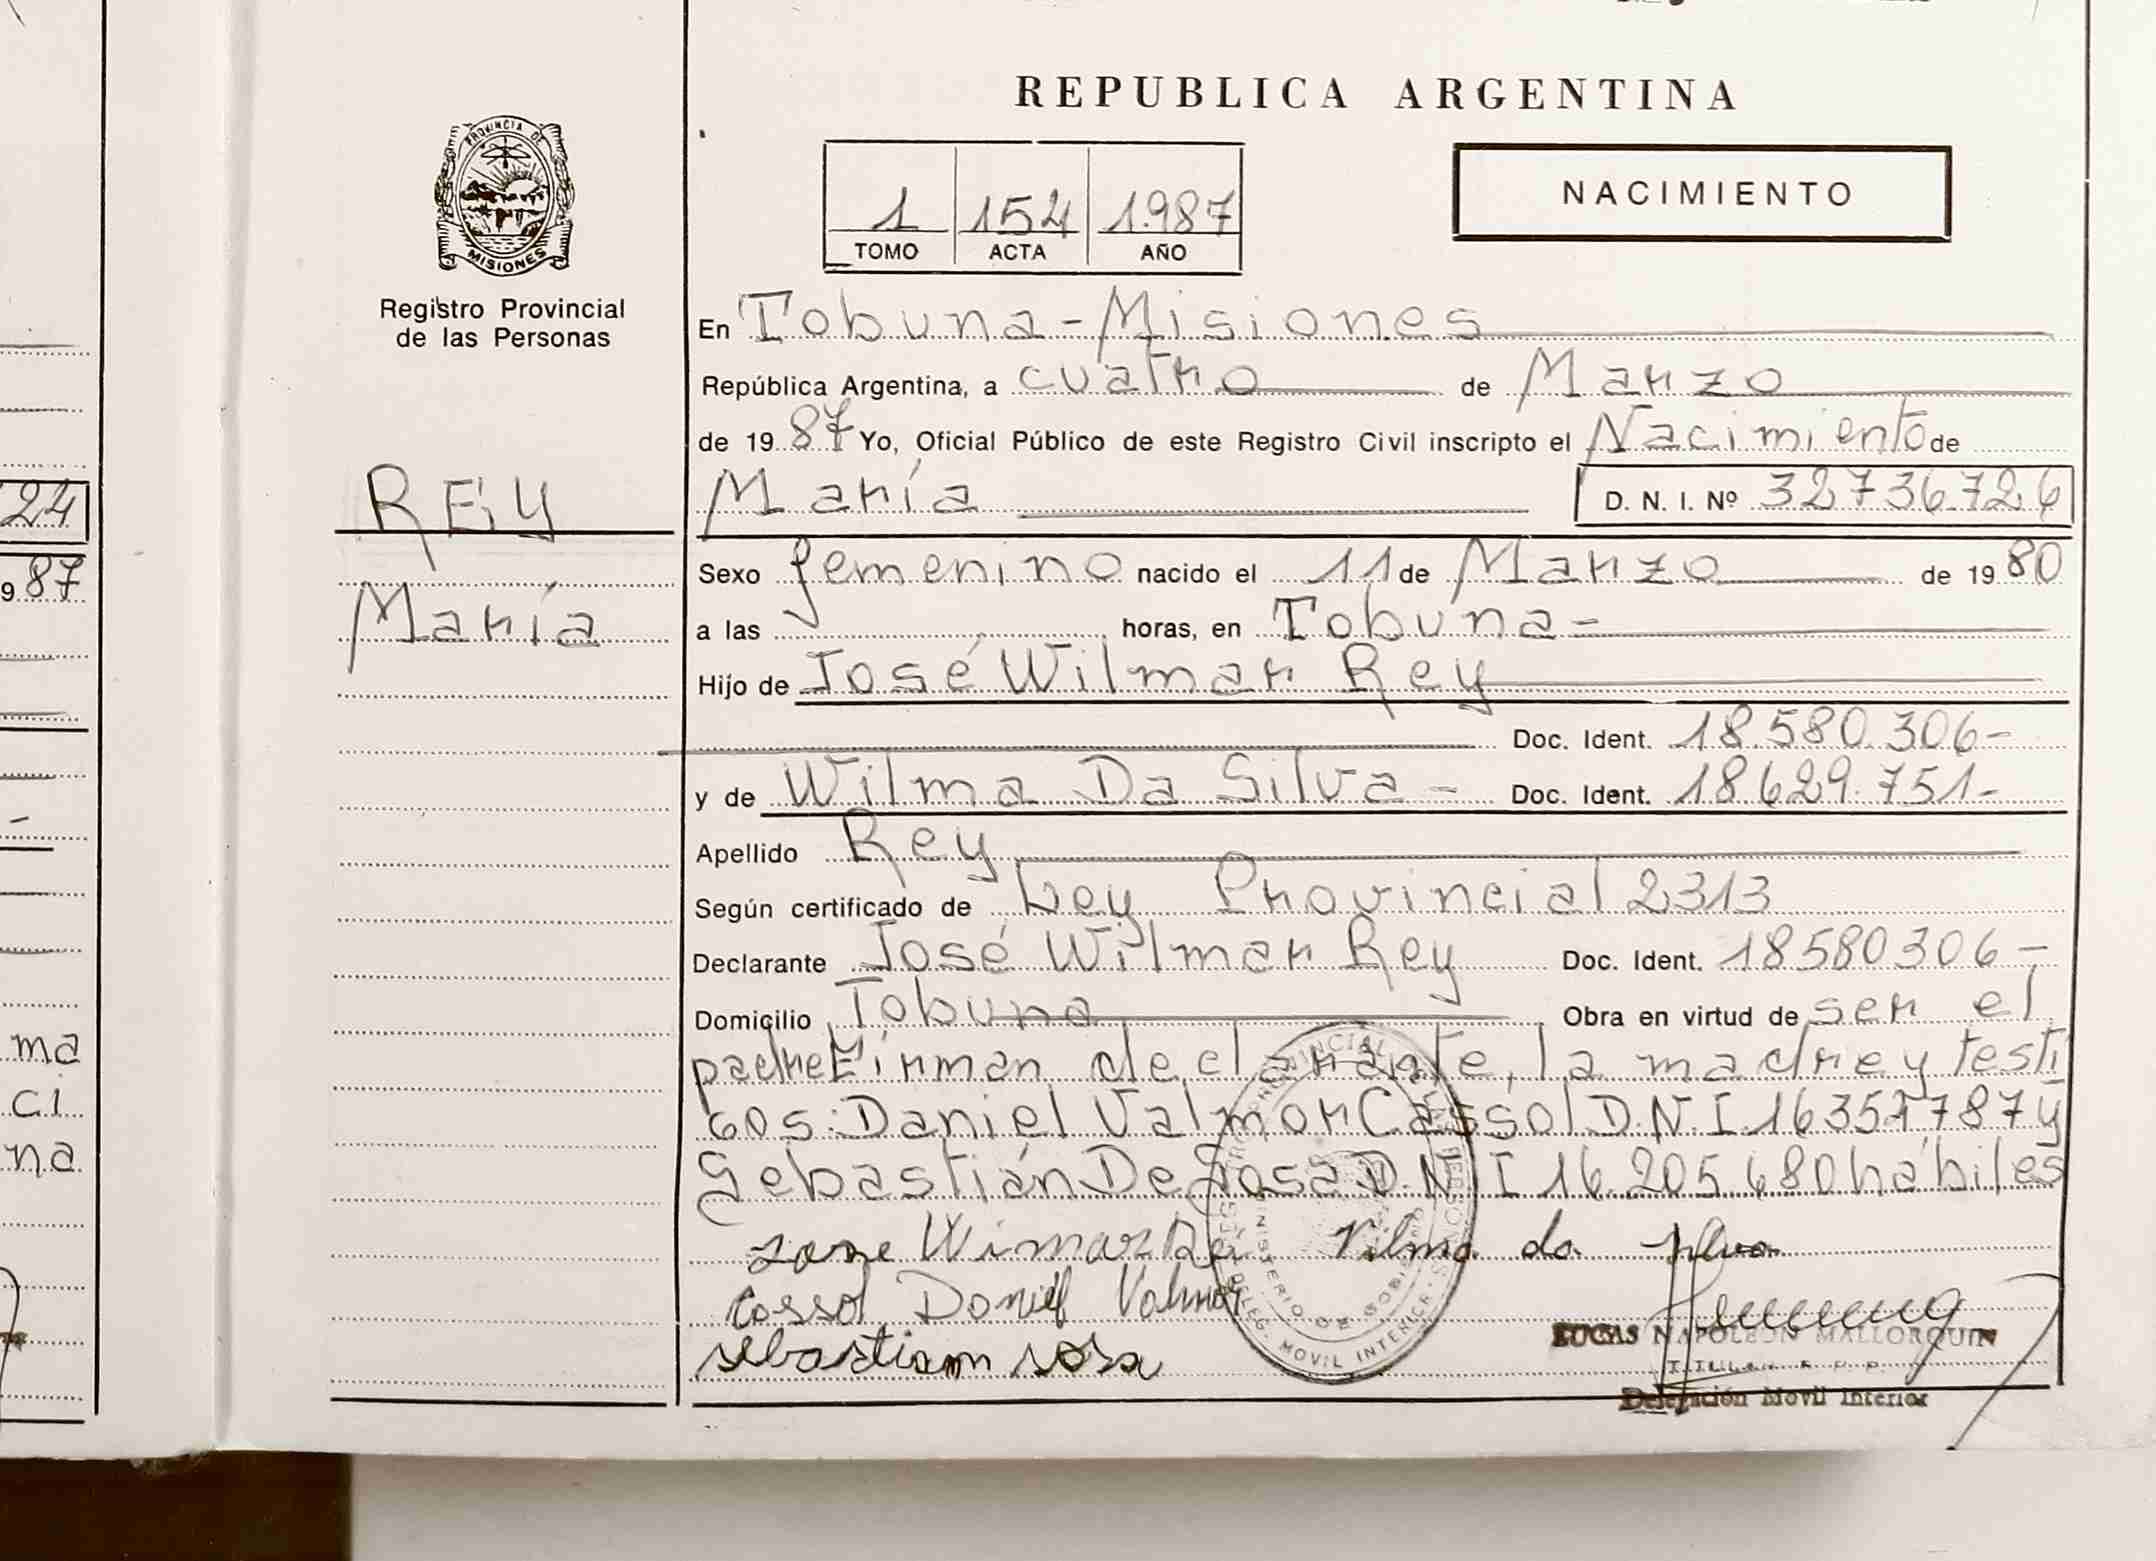 REPUBLICA ARGENTINA
PROVINCIA DE
MISIONES
Registro Provincial
de las Personas
1 154 1.987
TOMO ACTA AÑO
NACIMIENTO
En Tobuna-Misiones
República Argentina, a cuatro de Marzo
de 19 87 Yo, Oficial Público de este Registro Civil inscripto el Nacimiento de
REY
María D. N. I. Nº 32736726
Sexo femenino nacido el 11 de Marzo de 19 80
María
a las horas, en Tobuna-
Hijo de José Wilmar Rey
Doc. Ident. 18.580.306-
y de Wilma Da Silva - Doc. Ident. 18629.751-
Apellido Rey
Según certificado de Ley Provincial 2313
Declarante José Wilmar Rey Doc. Ident. 18580306-
Domicilio Tobuna Obra en virtud de ser el
padre Firman declarante, la madre y testi
gos: Daniel Valmor Cassol D.N.I 16357787 y
Sebastián De Sosa D.N.I 16.205.680 hábiles
Jose Wimar Rei Vilma da silva
Cassol Daniel Valmor
sebastiam sosa
LUCAS NAPOLEON MALLORQUIN
Delegación Movil Interior
MINISTERIO DE GOBIERNO
DELEG. MOVIL INTERIOR
24
9 87
ma
ci
na